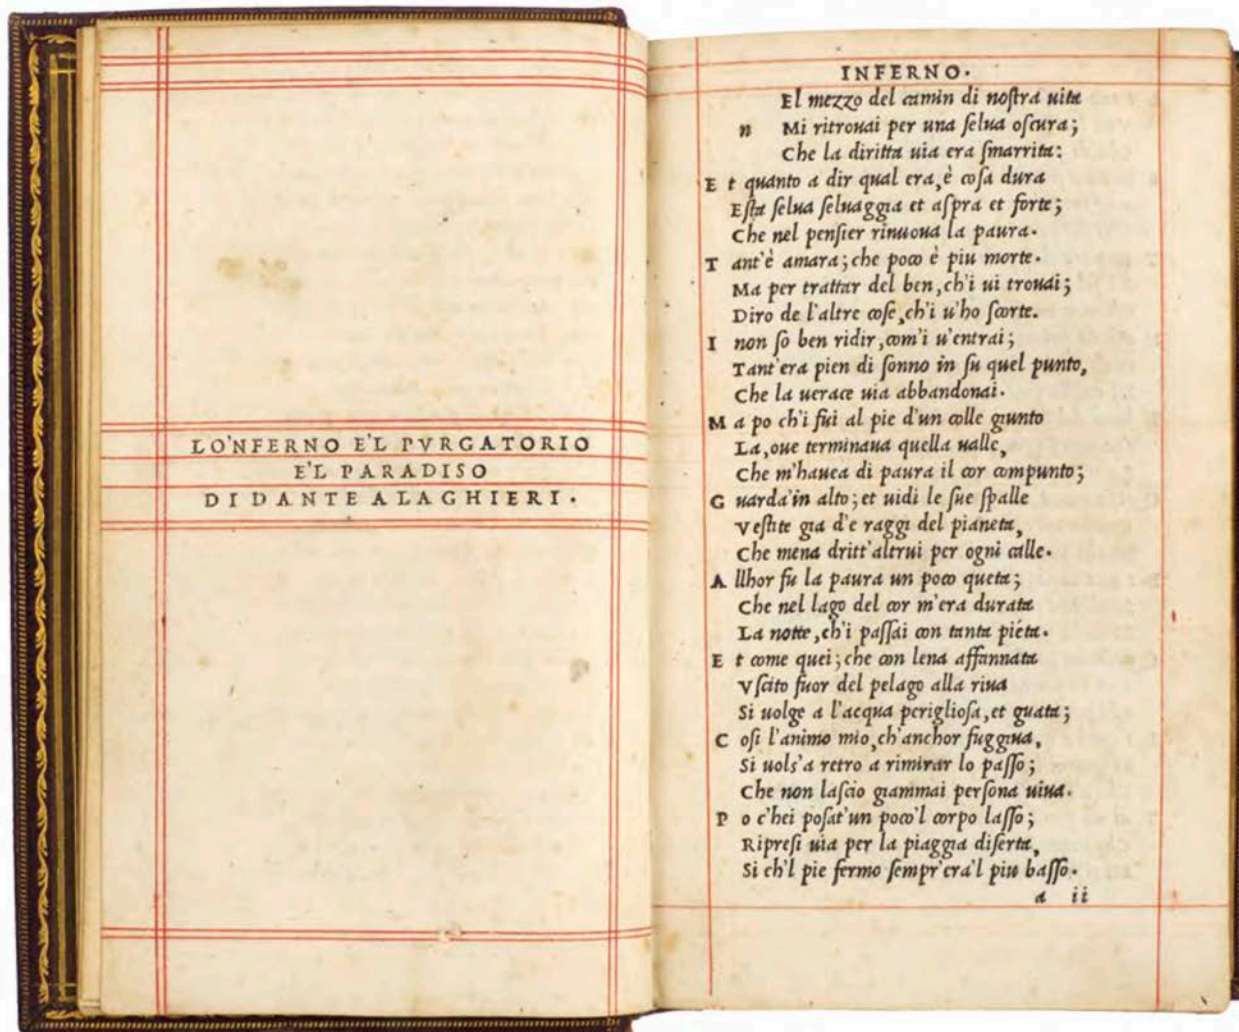 LO'NFERNO E'L PVRGATORIO
E'L PARADISO
DI DANTE ALAGHIERI.
INFERNO.
El mezzo del camin di noſtra uita
n Mi ritrouai per una ſelua oſcura;
Che la diritta uia era ſmarrita:
E t quanto a dir qual era, è coſa dura
Eſta ſelua ſeluaggia et aſpra et forte;
Che nel penſier rinuoua la paura.
T ant'è amara; che poco è piu morte.
Ma per trattar del ben, ch'i ui trouai;
Diro de l'altre coſe, ch'i u'ho ſcorte.
I non ſo ben ridir, com'i u'entrai;
Tant'era pien di ſonno in ſu quel punto,
Che la uerace uia abbandonai.
M a po ch'i fui al pie d'un colle giunto
La, oue terminaua quella ualle,
Che m'hauea di paura il cor compunto;
G uarda'in alto; et uidi le ſue ſpalle
Veſtite gia d'e raggi del pianeta,
Che mena dritt'altrui per ogni calle.
A llhor fu la paura un poco queta;
Che nel lago del cor m'era durata
La notte, ch'i paſſai con tanta piéta.
E t come quei; che con lena affannata
Vſcito fuor del pelago alla riua
Si uolge a l'acqua periglioſa, et guata;
C oſi l'animo mio, ch'anchor fuggiua,
Si uols'a retro a rimirar lo paſſo;
Che non laſcio giammai perſona uiua.
P o c'hei poſat'un poco'l corpo laſſo;
Ripreſi uia per la piaggia diſerta,
Si ch'l pie fermo ſempr'era'l piu baſſo.
a ii